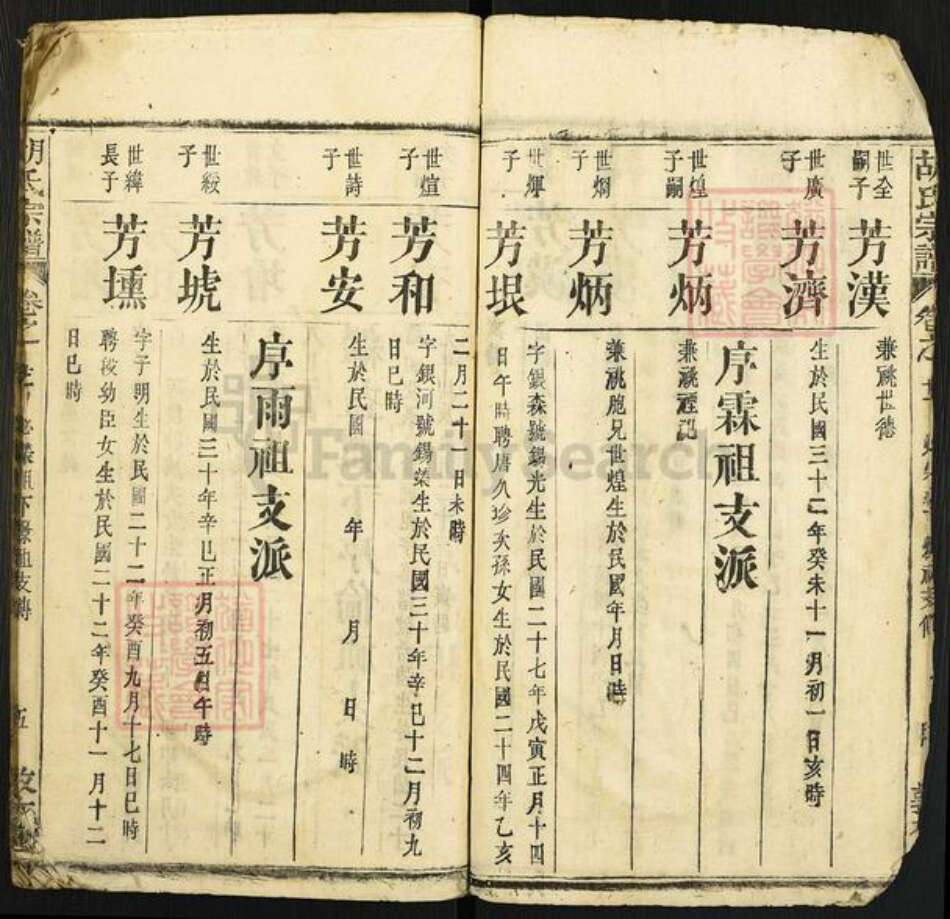 胡氏宗譜
世全
嗣子
芳漢
兼祧世德
世廣
子
芳濟
生於民國三十二年癸未十一月初一日亥時
序霖祖支派
世煌
子嗣
芳炳
兼祧
世炯
子
芳炳
兼祧胞兄世煌生於民國年月日時
世煇
子
芳垠
字銀森號錫光生於民國二十七年戊寅正月十四
日午時聘唐久珍次孫女生於民國二十四年乙亥
二月二十一日未時
世煊
子
芳和
字銀河號錫榮生於民國三十年辛巳十二月初九
日巳時
世詩
子
芳安
生於民國 年 月 日 時
序雨祖支派
世綬
子
芳琥
生於民國三十年辛巳正月初五日午時
世緯
長子
芳壎
字子明生於民國二十二年癸酉九月十七日巳時
聘 幼臣女生於民國二十二年癸酉十一月十二
日巳時
胡氏宗譜
五
FamilySearch